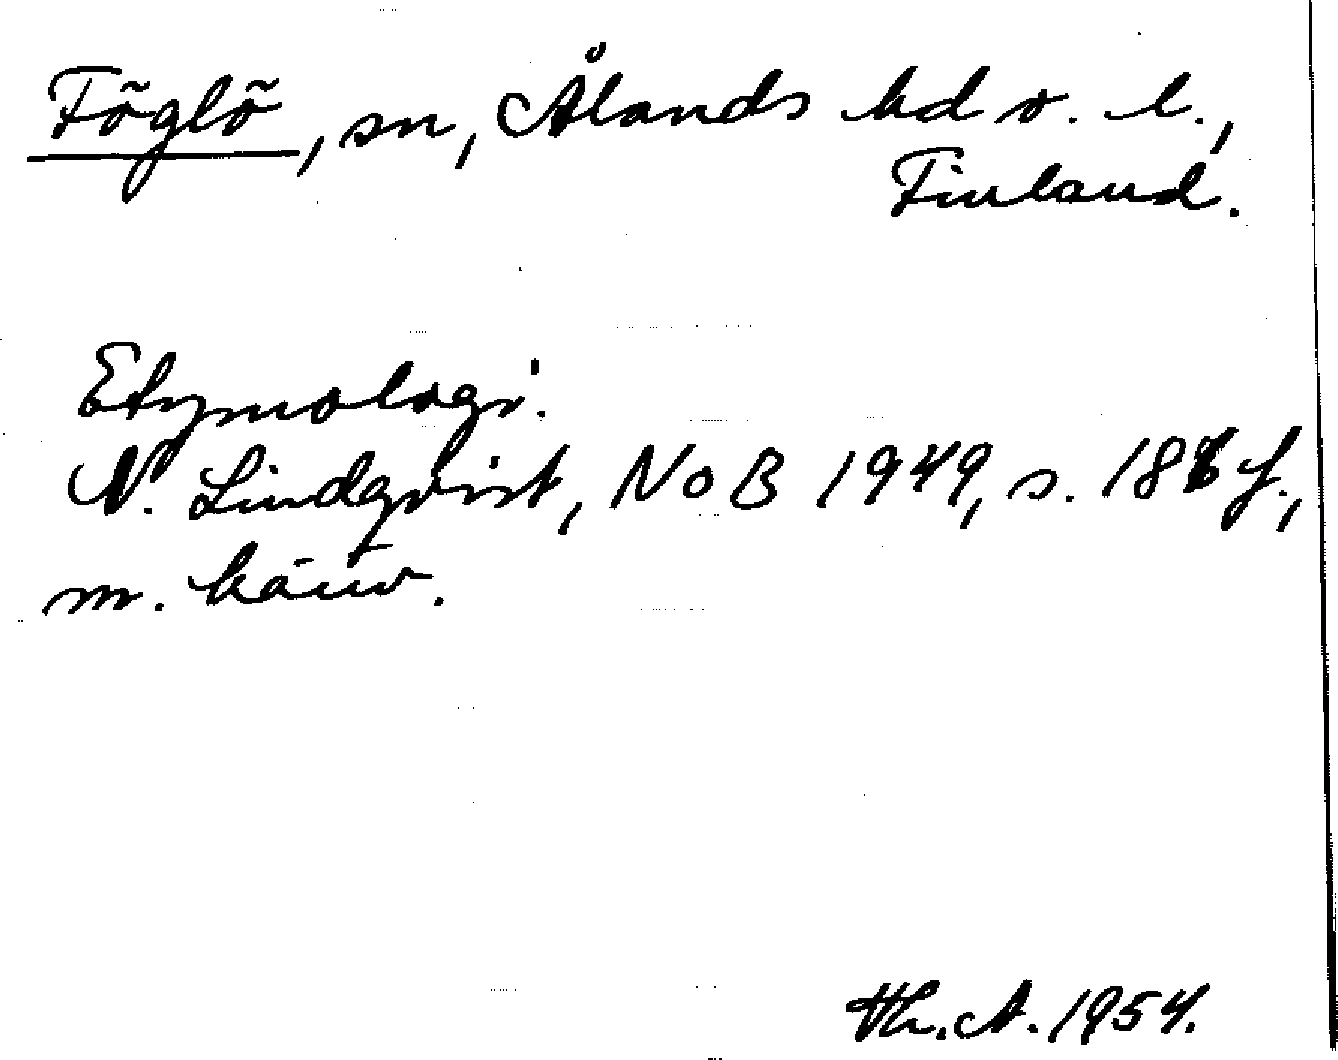 Föglö, sn, Ålands hd o. l.,
Finland.
Etymologi.
N. Lindqvist, NoB 1949, s. 186 f.,
m. hänv.
Th. A. 1954.